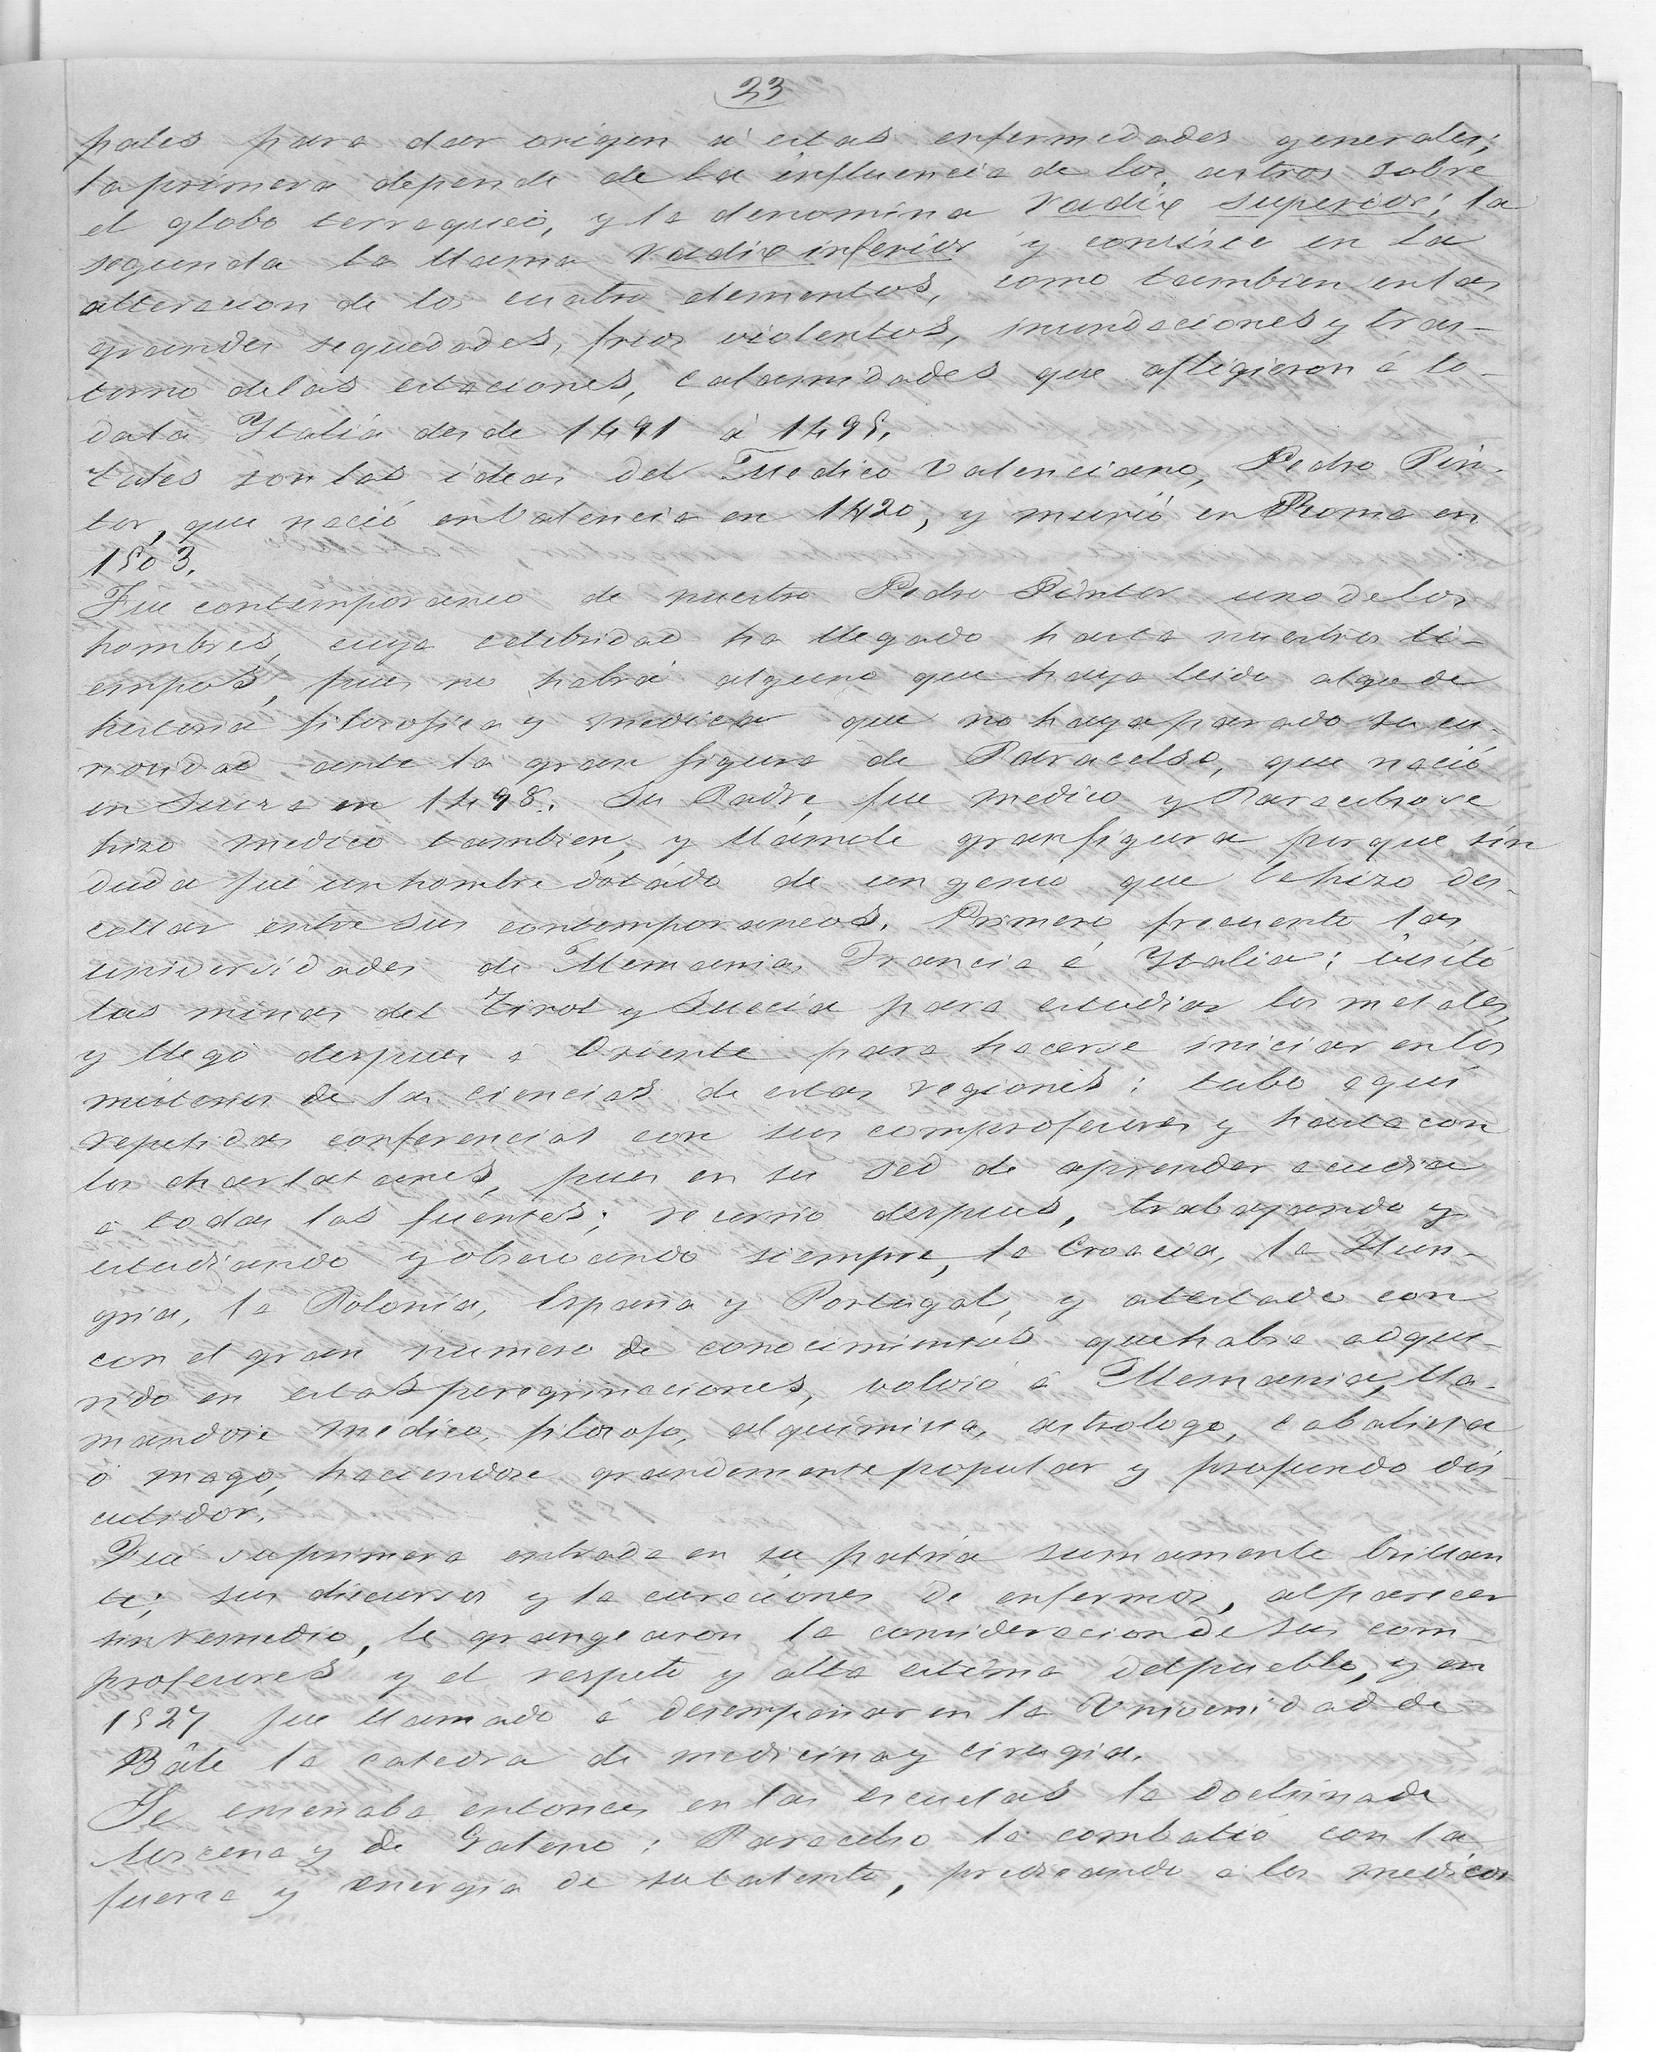 23
pales para dar origen á estas enfermedades generales;
la primera depende de la influencia de los astros sobre
el globo terraqueo, y la denomina radix superior; la
segunda la llama radix inferior y consiste en la
alteracion de los cuatro elementos, como tambien en las
grandes sequedades, frios violentos, inundaciones y tras-
torno de las estaciones, calamidades que afligieron á to-
da la Italia desde 1491 á 1495.
Tales son las ideas del Medico Valenciano, Pedro Pin-
tor, que nació en Valencia en 1420, y murió en Roma en
1503.
Fue contemporaneo de nuestro Pedro Pintor uno de los
hombres, cuya celebridad ha llegado hasta nuestros ti-
empos, pues no habrá alguno que haya leido algo de
historia filosofica y medica que no haya parado su cu-
riosidad ante la gran figura de Paracelso, que nació
en Suiza en 1498. Su Padre, fue medico y Paracelso se
hizo medico tambien, y llámole gran figura porque sin
duda fué un hombre dotado de un genio que le hizo des-
collar entre sus contemporaneos. Primero frecuento las
universidades de Alemania, Francia é Italia; visitó
las minas del Tirol y Suecia para estudiar los metales,
y llegó despues á Oriente para hacerse iniciar en los
misterios de las ciencias de estas regiones: tubo aqui
repetidas conferencias con sus comprofesores y hasta con
los charlatanes, pues en su sed de aprender acudia
á todas las fuentes; recurrio despues, trabajando y
estudiando y observando siempre, la Croacia, la Hun-
gria, la Polonia, España y Portugal, y atestado con
con el gran numero de conocimientos que habia adqui-
rido en estas peregrinaciones, volvió á Alemania, lla-
mandose medico, filosofo, alquimista, astrologo, cabalista
ó mago, haciendose grandemente popular y profundo dis-
cutidor.
Fué su primera entrada en su patria sumamente brillan
te; sus discursos y la curaciones de enfermos, al parecer
sin remedio, le grangearon la consideracion de sus com-
profesores y el respeto y alta estima del pueblo, y en
1527 fue llamado á desempeñar en la Universidad de
Bâle la catedra de medicina y cirugia.
Se enseñaba entonces en las escuelas la doctrina de
Avicena y de Galeno: Paracelso la combatió con la
fuerza y energia de su talento, predicando á los medicos